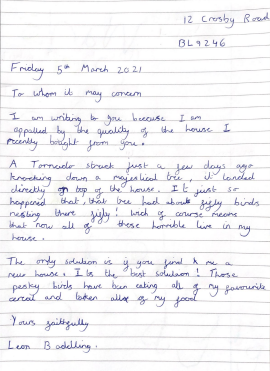 12 Crosby Road
BL9246
Friday 5th March 2021
To whom it may concern
I am writing to you because I am
appalled by the quality of the house I
recently bought from you.
A Tornado struck just a few days ago
knocking down a majestical tree, it landed
directly on top of the house. It just so
happened that, that tree had about fifty birds
nesting there fifty! Wich of course means
that now all of these horrible live in my
house.
The only solution is if you find me a
new house. Its the best solution! Those
pesky birds have been eating all of my favourite
cereal and taken all of my food
Yours faithfully
Leon Badelling.